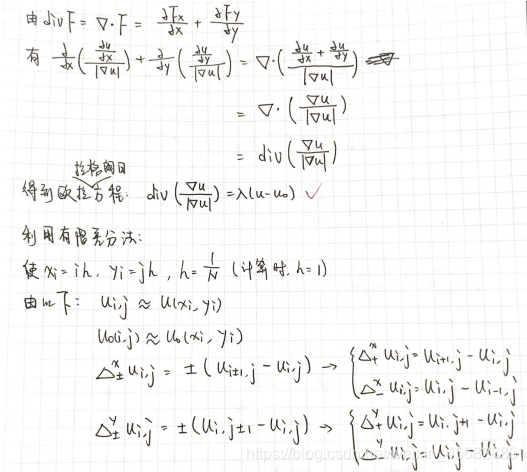 由 div F = ∇·F = ∂Fx/∂x + ∂Fy/∂y
有 ∂/∂x((∂u/∂x)/|∇u|) + ∂/∂y((∂u/∂y)/|∇u|) = ∇·((∂u/∂x + ∂u/∂y)/|∇u|)
= ∇·(∇u/|∇u|)
= div(∇u/|∇u|)
拉格朗日
得到欧拉方程: div(∇u/|∇u|) = λ(u-u₀) ✓
利用有限差分法:
使 xi = ih, yj = jh, h = 1/N (计算时, h=1)
由以下: ui,j ≈ u(xi, yj)
u₀(i,j) ≈ u₀(xi, yj)
Δ±ˣ ui,j = ±(ui±1,j - ui,j) → { Δ₊ˣ ui,j = ui+1,j - ui,j
Δ₋ˣ ui,j = ui,j - ui-1,j
Δ±ʸ ui,j = ±(ui,j±1 - ui,j) → { Δ₊ʸ ui,j = ui,j+1 - ui,j
Δ₋ʸ ui,j = ui,j -
https://blog.csdn.net/